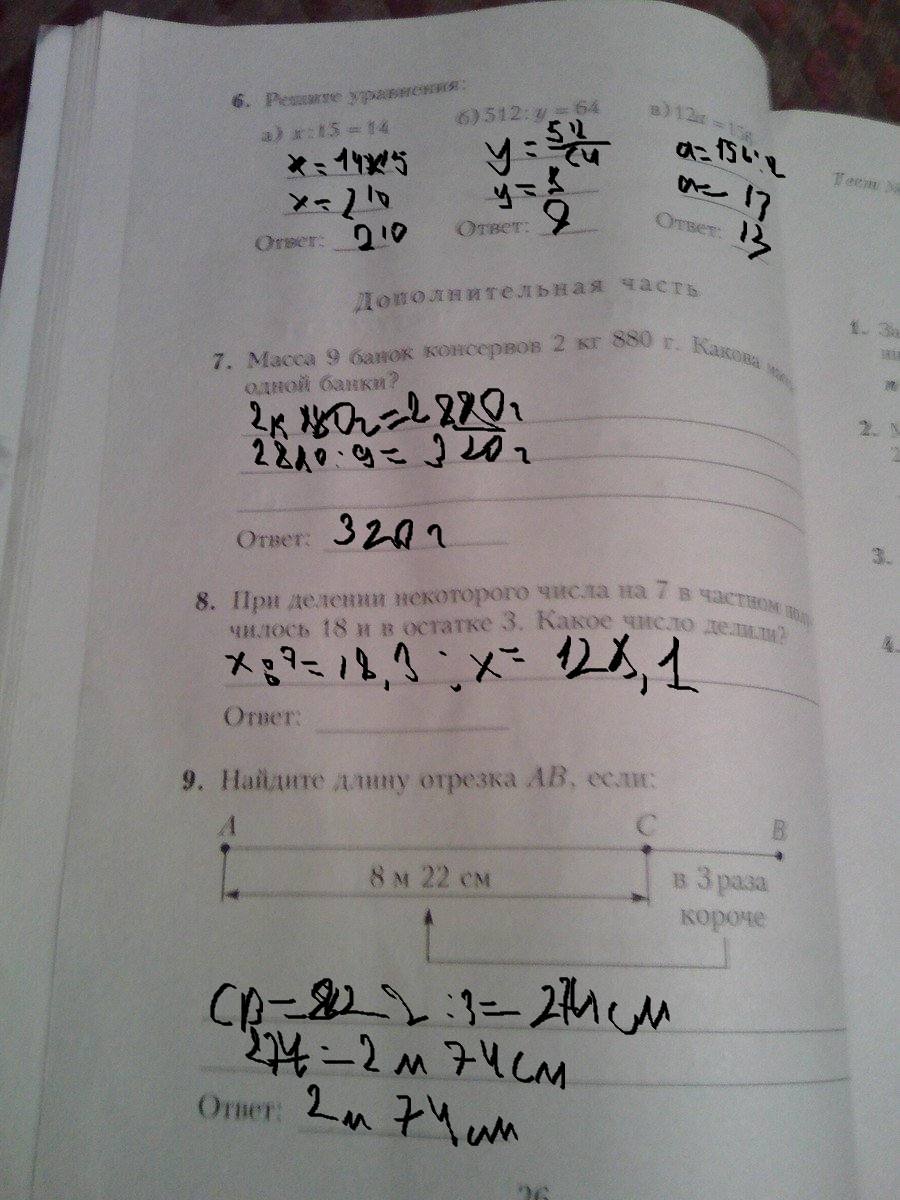 6. Решите уравнения:
а) x : 15 = 14 б) 512 : y = 64 в) 12a = 156
x = 14x15 y = 512/64 a = 156:12
x = 210 y = 8 a = 13
Ответ: 210 Ответ: 8 Ответ: 13
Дополнительная часть
7. Масса 9 банок консервов 2 кг 880 г. Какова
одной банки?
2к 880г = 2880г
2880 : 9 = 320 г
Ответ: 320 г
8. При делении некоторого числа на 7 в частном полу
чилось 18 и в остатке 3. Какое число делили?
x : 7 = 18,3 ; x = 128,1
Ответ:
9. Найдите длину отрезка AB, если:
A C B
8 м 22 см в 3 раза
короче
CB = 822 : 3 = 274 см
274 = 2 м 74 см
Ответ: 2м 74 см
26
Тест №
1. За
ни
2. М
2
3.
4.